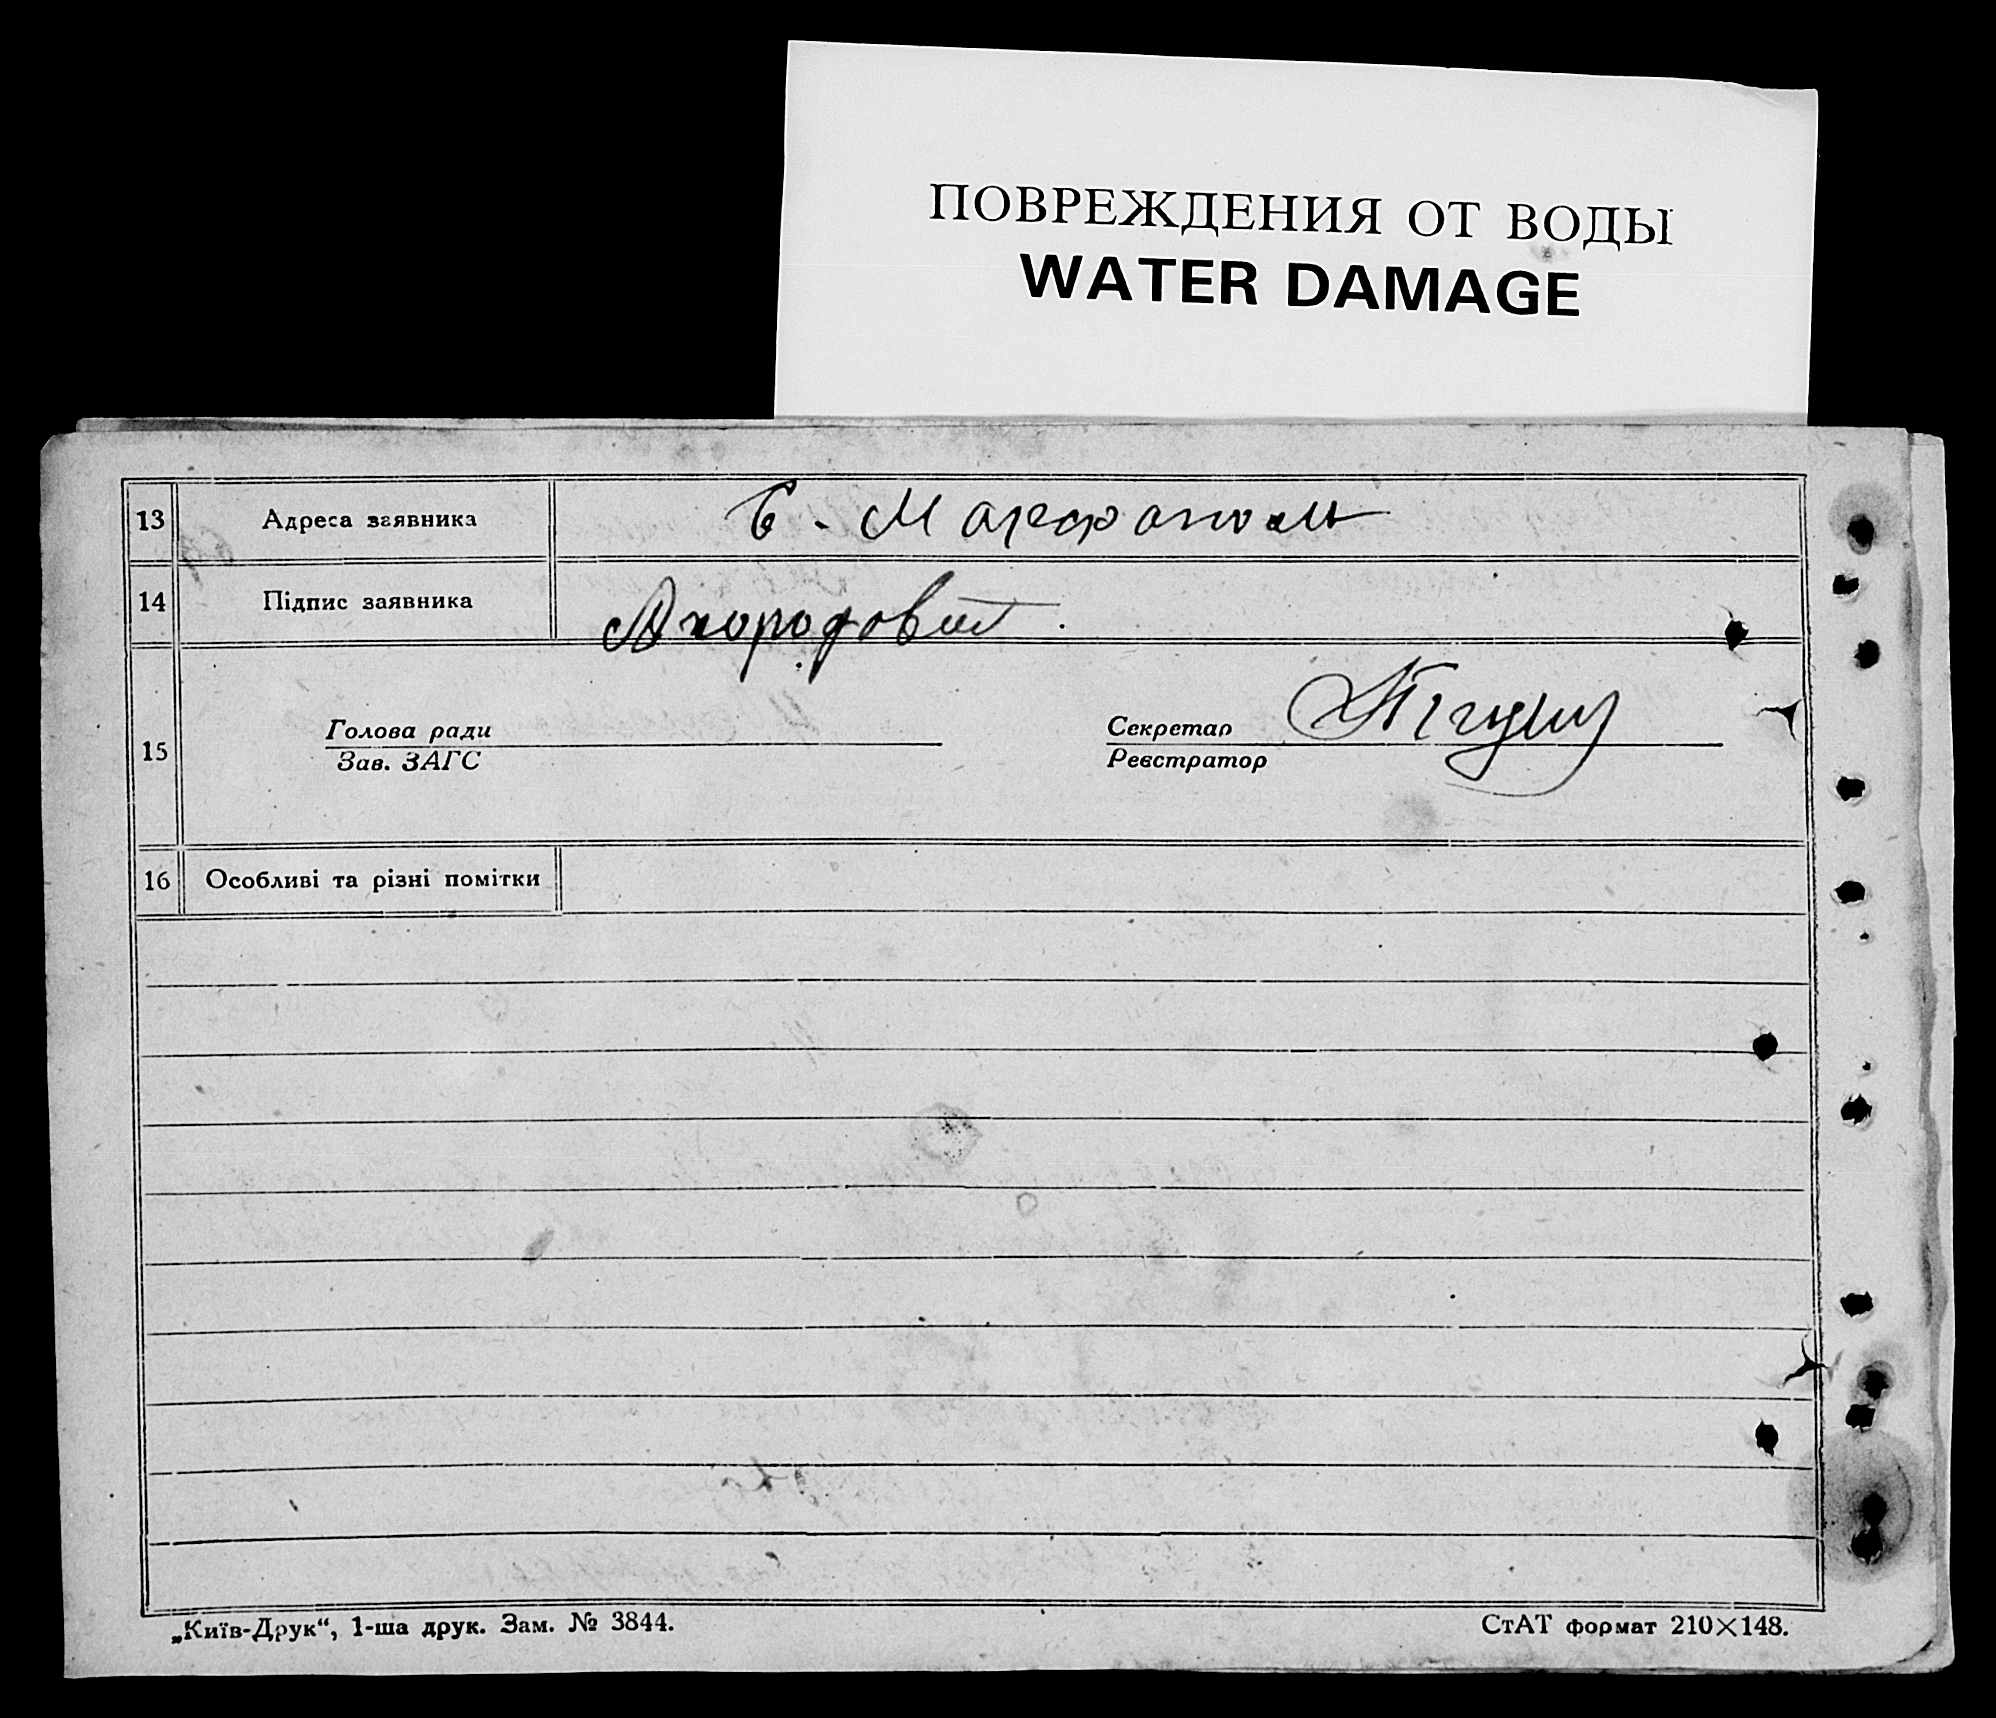 ПОВРЕЖДЕНИЯ ОТ ВОДЫ
WATER DAMAGE
13 Адреса заявника
14 Підпис заявника
15 Голова ради Секретар
Зав. ЗАГС Реєстратор
16 Особливі та різні помітки
„Київ-Друк“, 1-ша друк. Зам. № 3844. СтАТ формат 210×148.